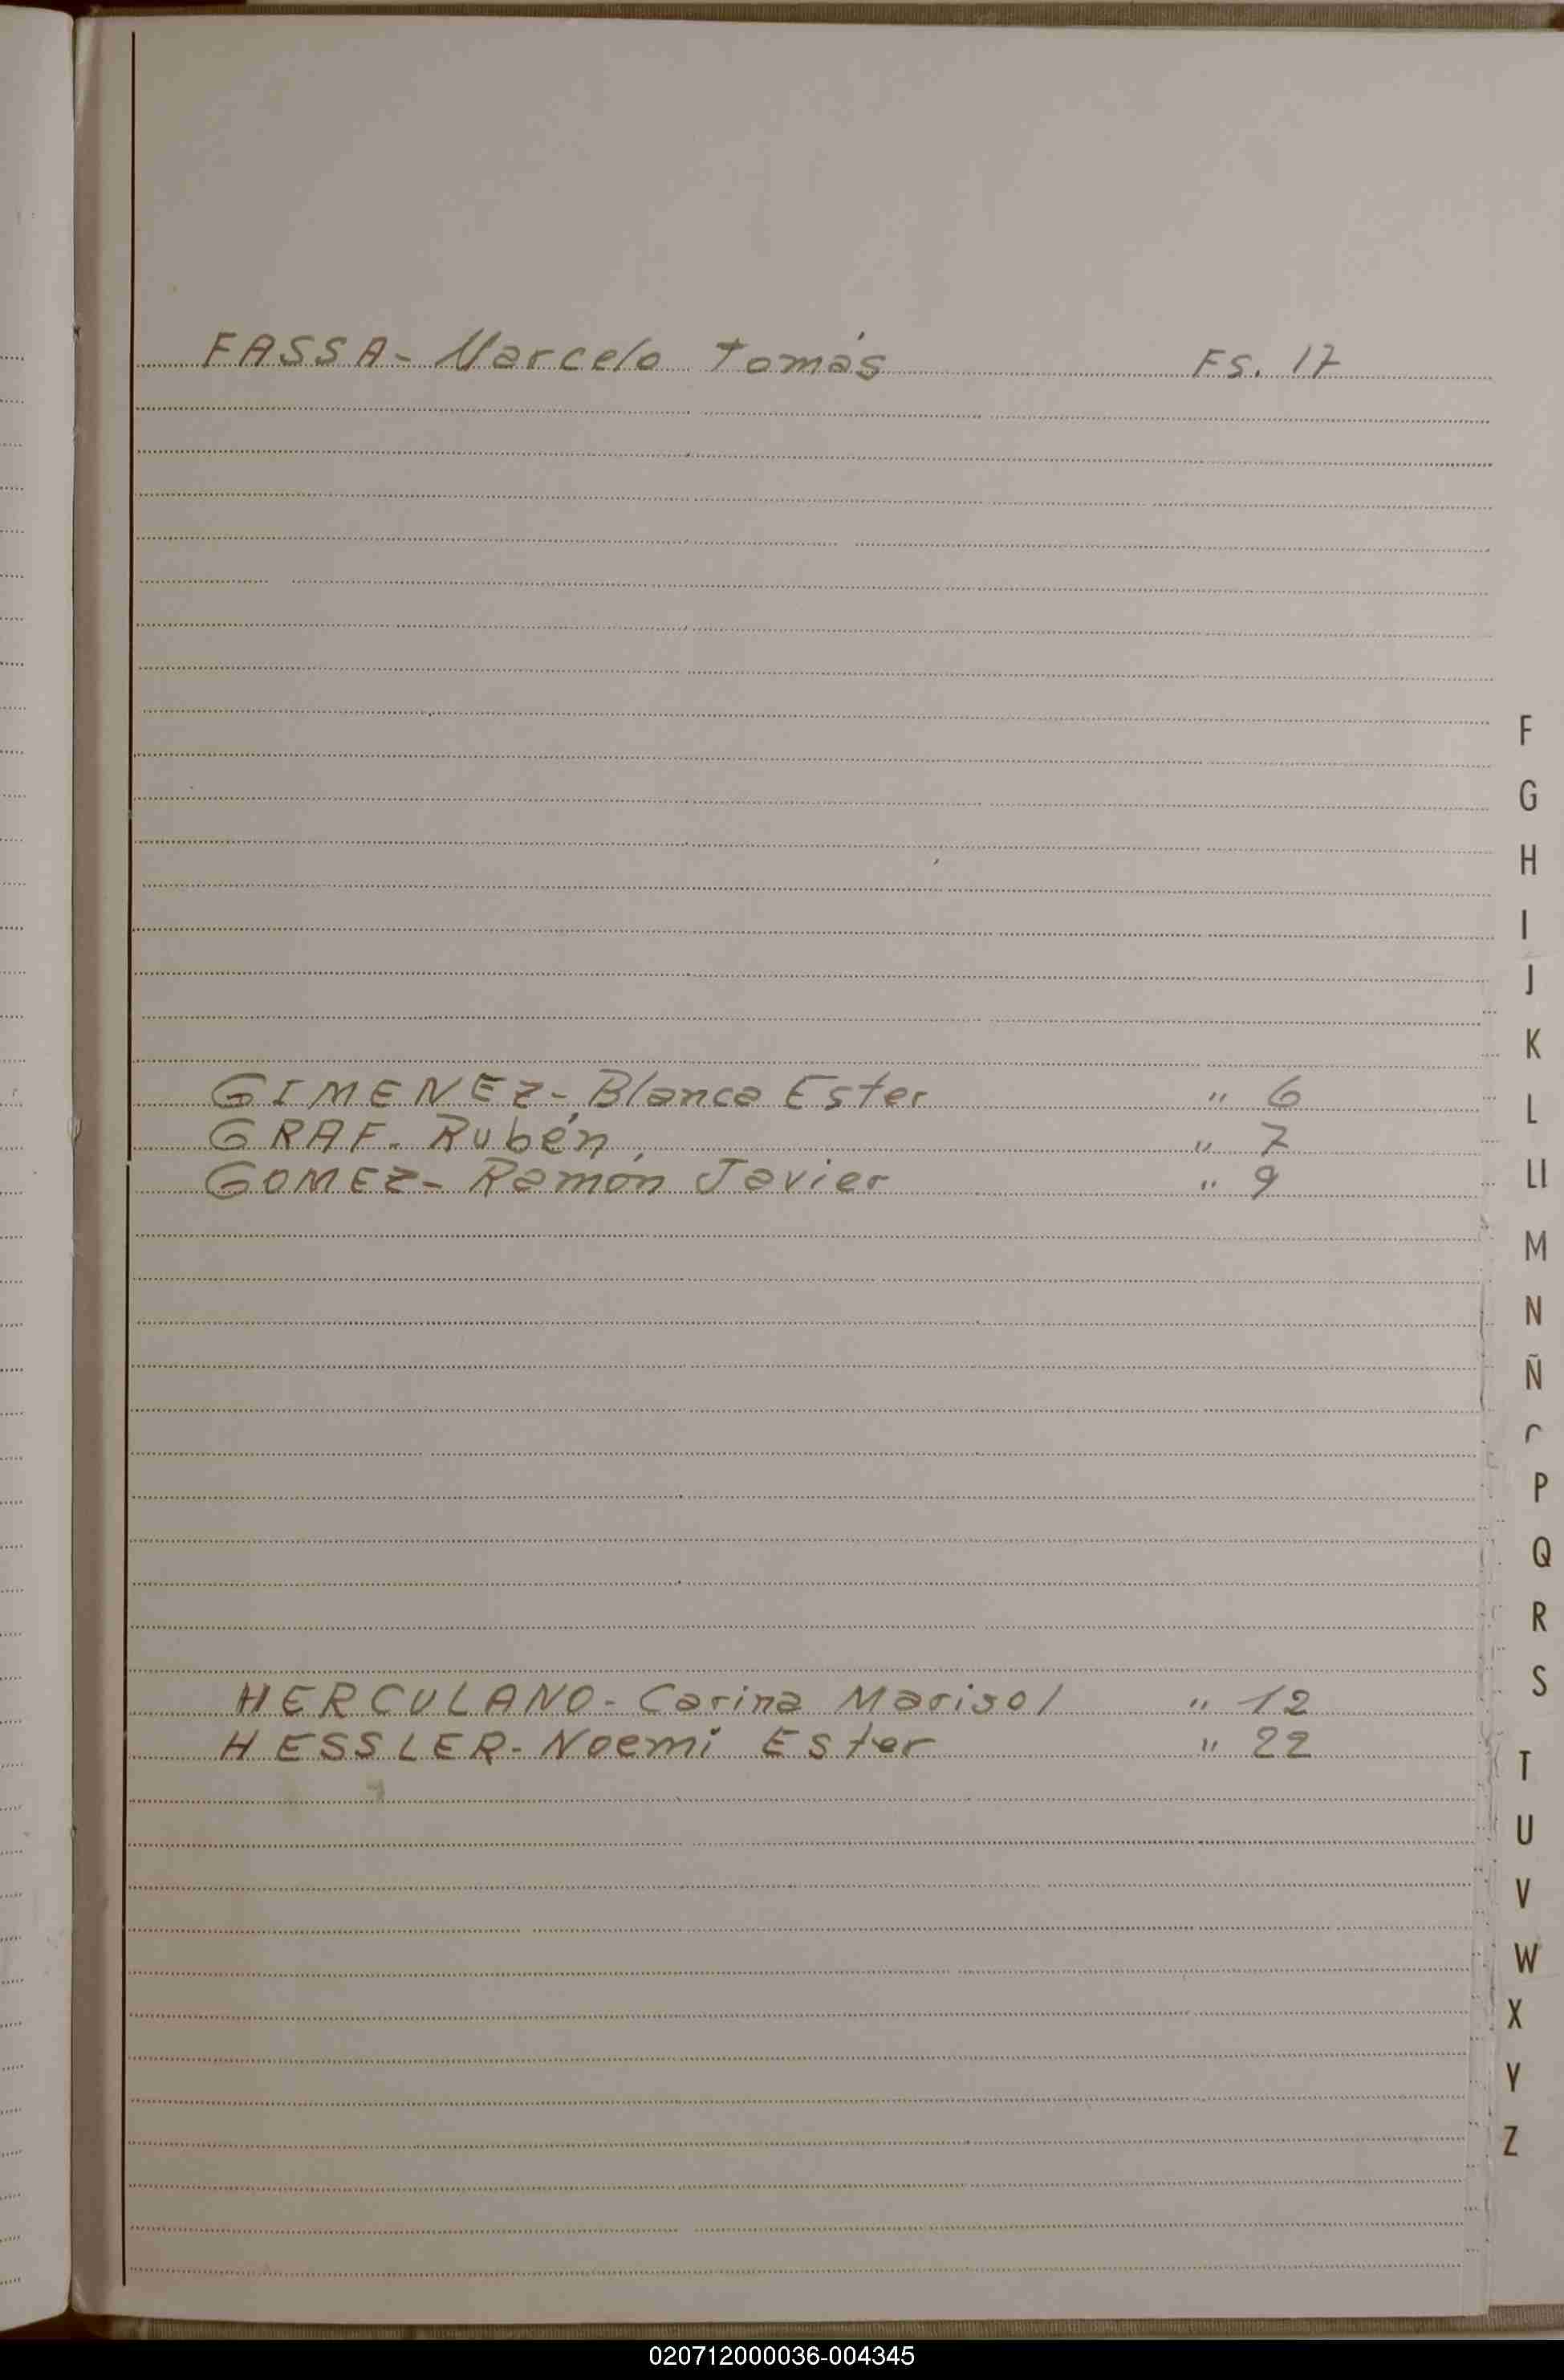 FASSA- Marcelo Tomás FS. 17
F
G
H
I
J
K
GIMENEZ- Blanca Ester " 6
L
GRAF. Rubén " 7
GOMEZ- Ramón Javier " 9
Ll
M
N
Ñ
P
Q
R
S
HERCULANO- Carina Marisol " 12
HESSLER- Noemi Ester " 22
T
U
V
W
X
Y
Z
020712000036-004345